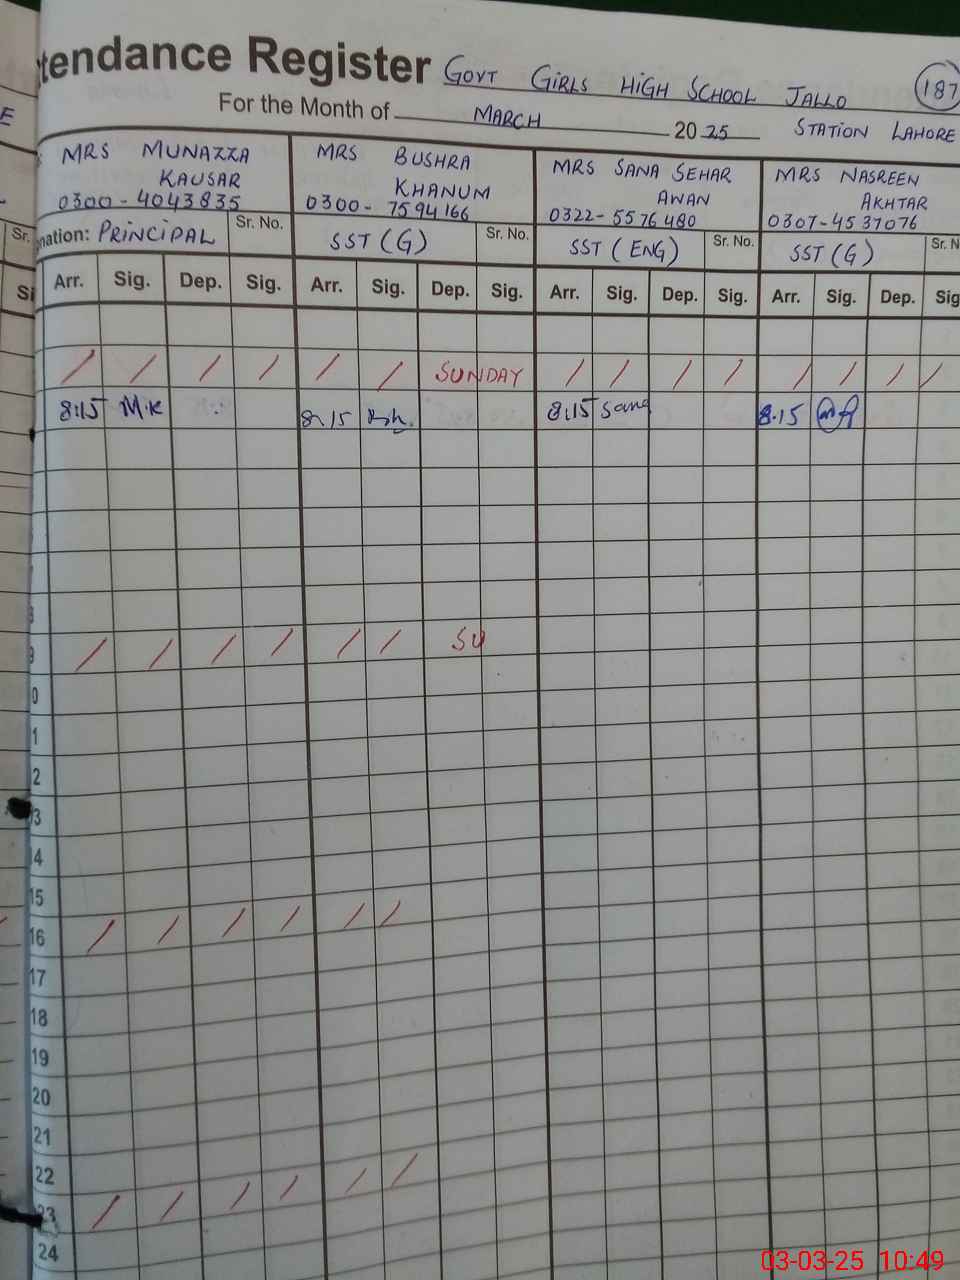 tendance Register GOVT GIRLS HIGH SCHOOL JALLO 187
For the Month of MARCH 2025 STATION LAHORE
E
MRS MUNAZZA KAUSAR
0300-4043835
nation: PRINCIPAL Sr. No.
MRS BUSHRA KHANUM
0300-7594166
SST (G) Sr. No.
MRS SANA SEHAR AWAN
0322-5576480
SST (ENG) Sr. No.
MRS NASREEN AKHTAR
0307-4537076
SST (G) Sr. N
Sr.
Si Arr. Sig. Dep. Sig. Arr. Sig. Dep. Sig. Arr. Sig. Dep. Sig. Arr. Sig. Dep. Sig
/ / / / / / SUNDAY / / / / / / / /
8:15 M.K 8.15 8:15 Sana 8.15
9 / / / / / / SU
0
1
2
3
4
15
16 / / / / / /
17
18
19
20
21
22
23 / / / / / /
24
03-03-25 10:49